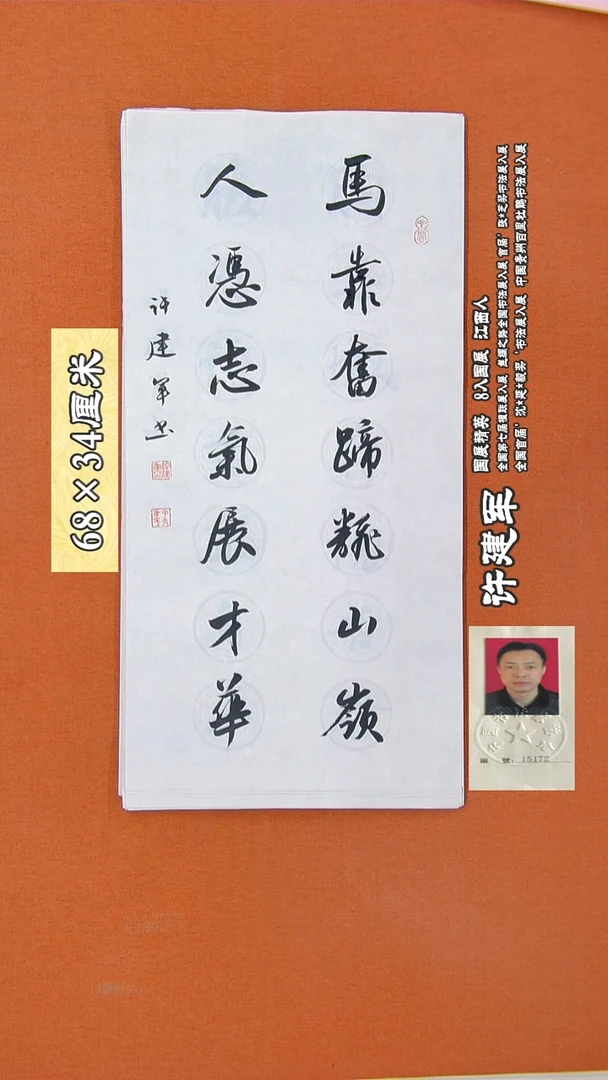 馬靠奮蹄山嶺
人憑志氣展才華
许建军书
68×34厘米
国展精英 8入国展 江西人
全国第七届楹联展入展 丝绸之路全国书法展入展 首届'张★芝奖书法展入展
全国首届'沈★延★毅奖'书法展入展 中国贵州百里杜鹃书法展入展
许建军
编 号：15172